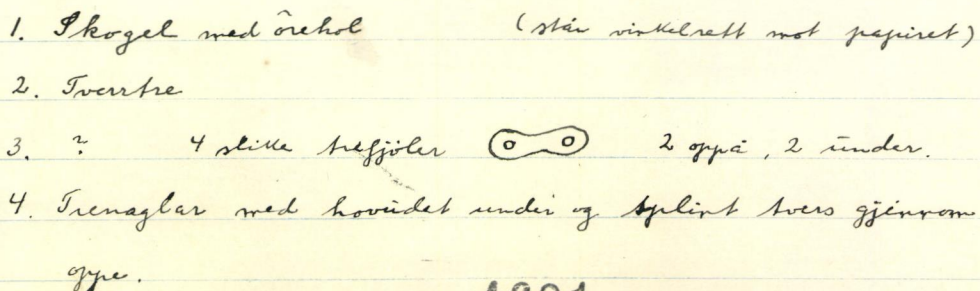 1. Skogel med örehol (står vinkelrett mot papiret)
2. Tverrtre
3. ? 4 slike trefjöler 2 oppå, 2 under.
4. Trenaglar med hovudet under og splint tvers gjennom
oppe.